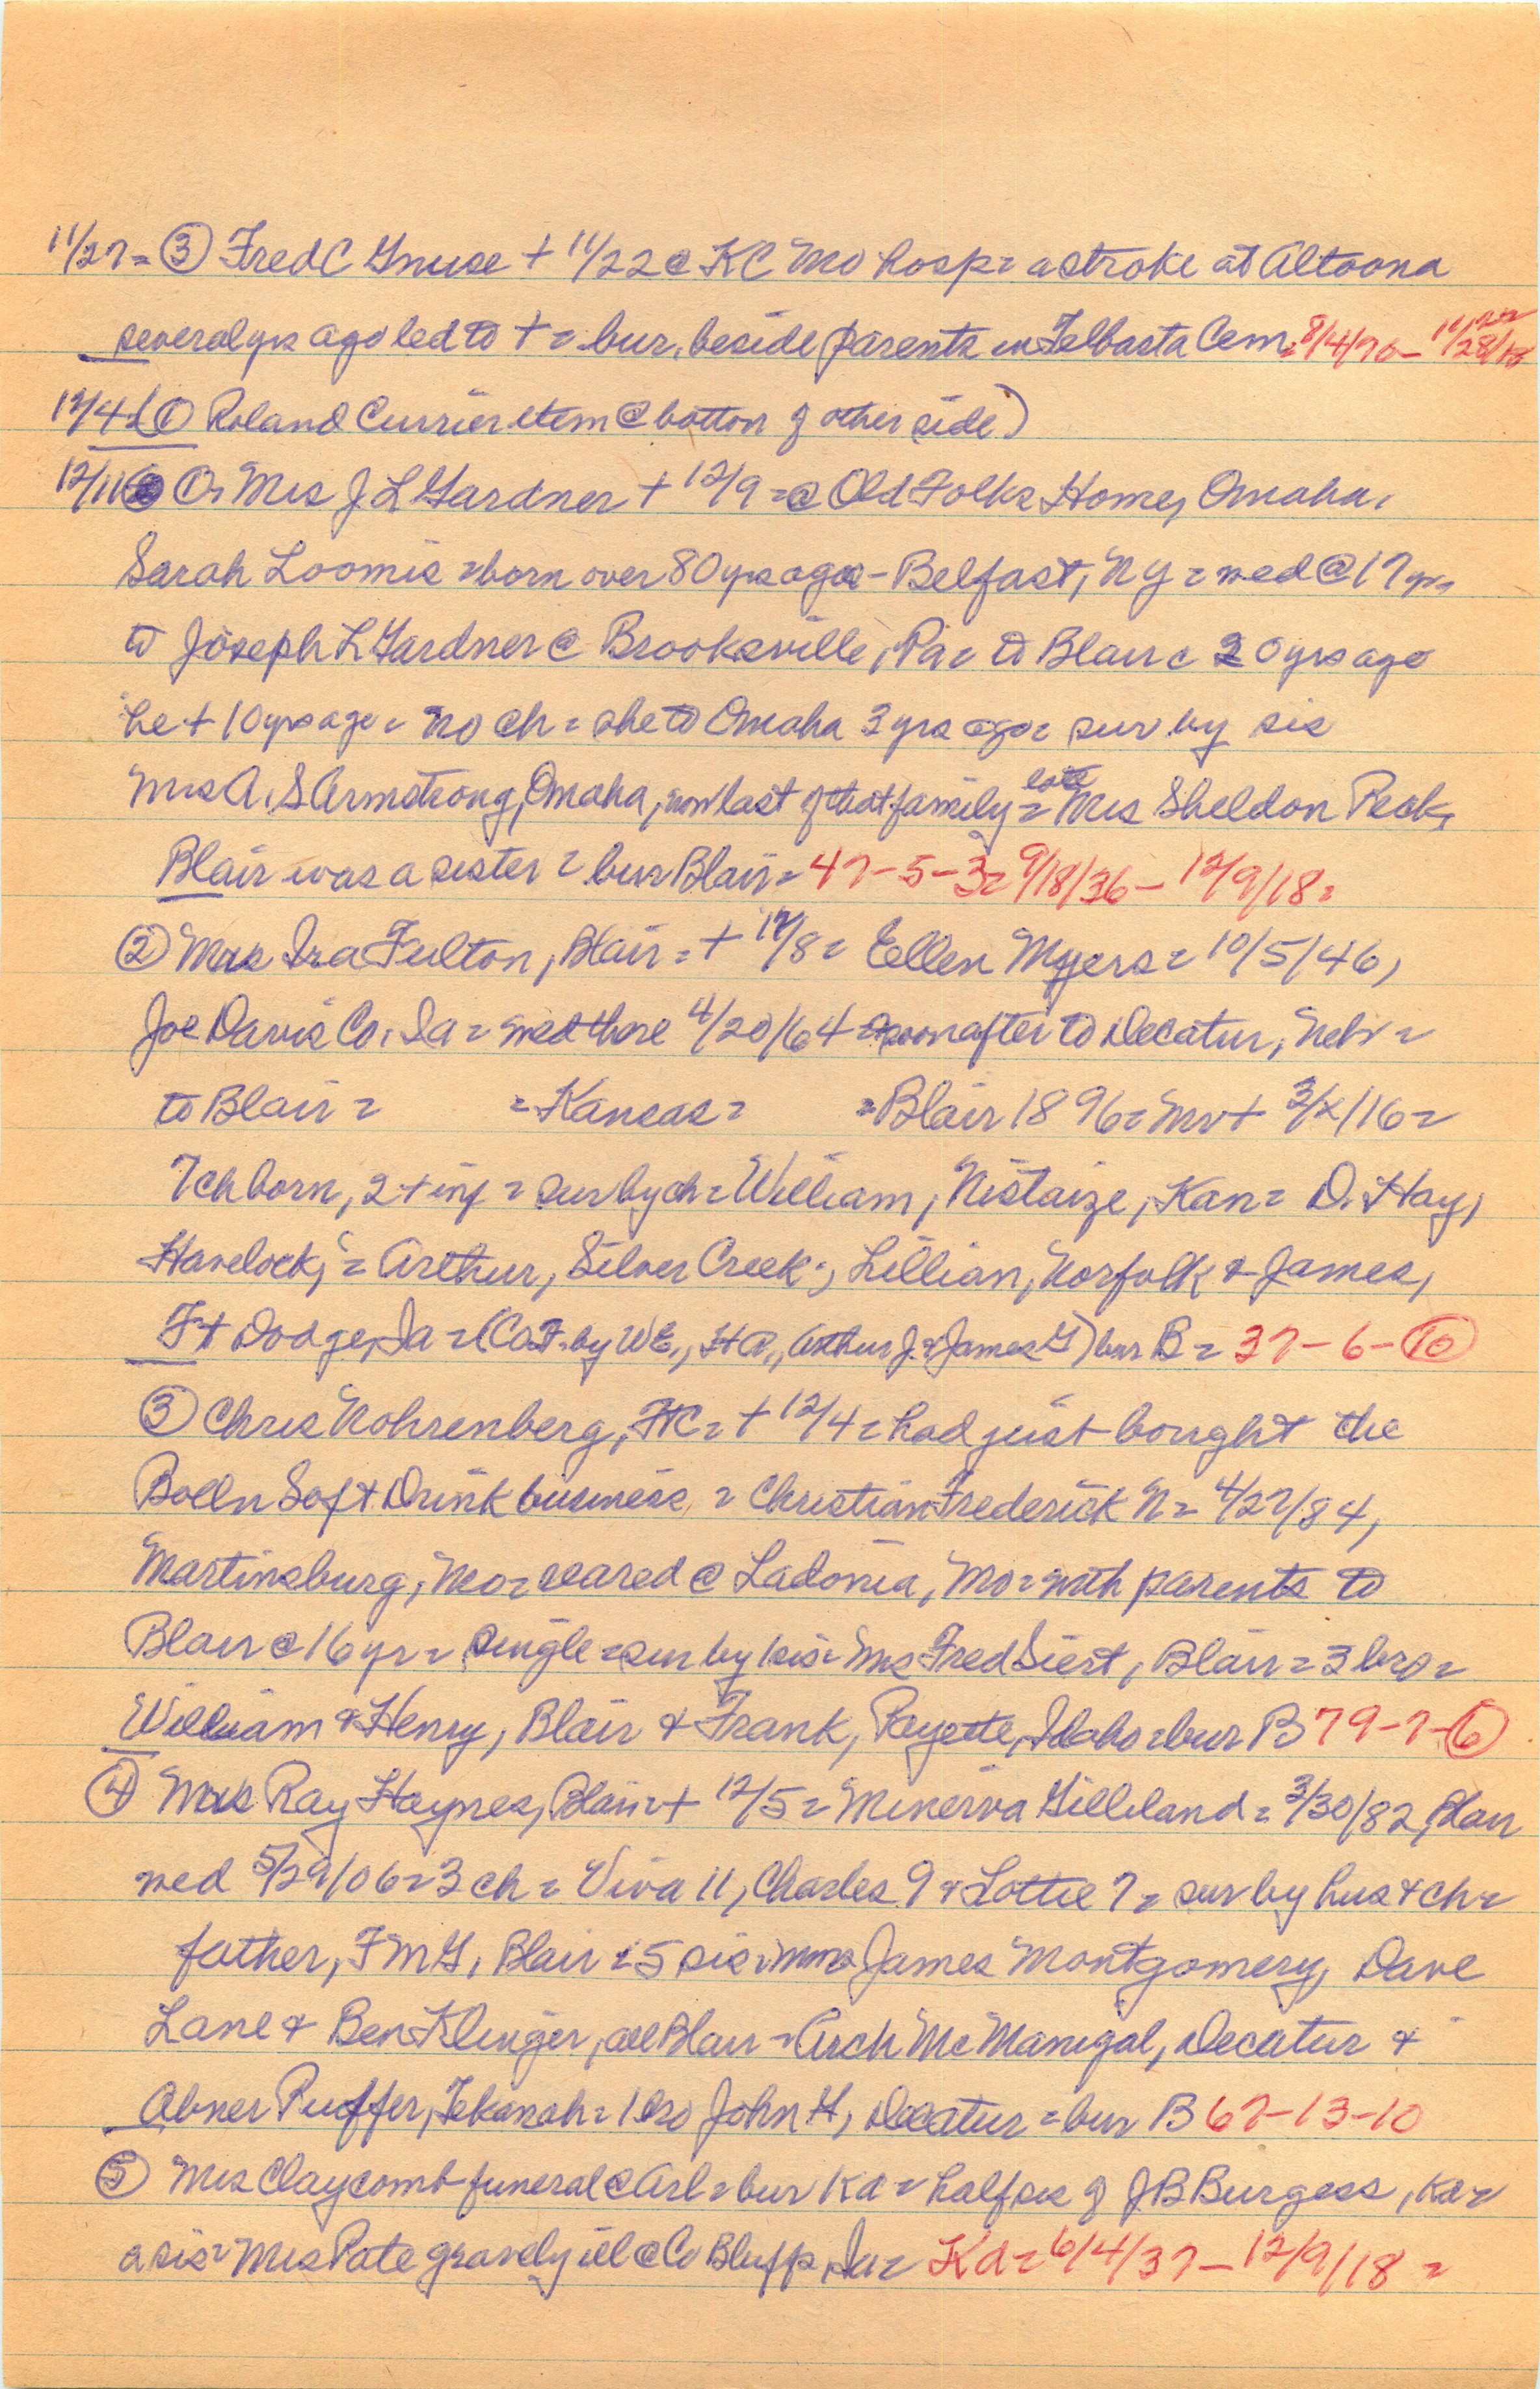 11/27= ③ Fred C Gnuse + 11/22 @ KC Mo hosp= a stroke at Altoona
several yrs ago led to + = bur. beside parents in Telbasta Cem= 8/4/70-
12/4= (① Roland Currier item @ bottom of other side)
12/11 O. Mrs J L Gardner + 12/9 = @ Old Folks Home, Omaha,
Sarah Loomis = born over 80 yrs ago - Belfast, NY = wed @ 17 yrs
to Joseph L Gardner @ Brooksville, Pa = to Blair c 20 yrs ago
he + 10 yrs ago = no ch = she to Omaha 3 yrs ago = sur by sis
Mrs A. S Armstrong, Omaha, now last of that family = late Mrs Sheldon Peck,
Blair was a sister = bur Blair = 47-5-3= 9/18/36 - 12/9/18 =
② Mrs Ira Fulton, Blair = + 12/8 = Ellen Myers = 10/5/46,
Joe Davis Co. Ia = wed there 4/20/64 = soon after to Decatur, Nebr =
to Blair = = Kansas = = Blair 1896 = Mr + 3/x/16 =
7 ch born, 2 + inf = sur by ch = William, Nistaize, Kan = D. Hay,
Havelock, = Arthur, Silver Creek, Lillian, Norfolk & James,
Ft Dodge, Ia = (CoT. by WE., HA., Arthur J. & James G) bur B = 37-6-⑩
③ Chris Nohrenberg, FtC = + 12/4 = had just bought the
Bolln Soft Drink business = Christian Frederick N = 4/27/84,
Martinsburg, Mo = reared @ Ladonia, Mo = with parents to
Blair @ 16 yr = single = sur by 1 sis = Mrs Fred Siert, Blair = 3 bro =
William & Henry, Blair & Frank, Payette, Idaho = bur B 79-7-⑥
④ Mrs Ray Haynes, Blair = + 12/5 = Minerva Gilliland = 3/30/82, Blair
wed 5/29/06 = 3 ch = Viva 11, Charles 9 & Lottie 7 = sur by hus & ch =
father, F M G, Blair = 5 sis = Mmes James Montgomery, Dave
Lane & Ben Klinger, all Blair = Arch McManigal, Decatur &
Abner Puffer, Tekamah = 1 bro John G, Decatur = bur B 67-13-10
⑤ Mrs Claycomb funeral @ Arl = bur Kd = half sis of J B Burgess, Kd =
a sis = Mrs Pate gravely ill @ Co Bluffs, Ia = Kd = 6/4/37 - 12/9/18 =